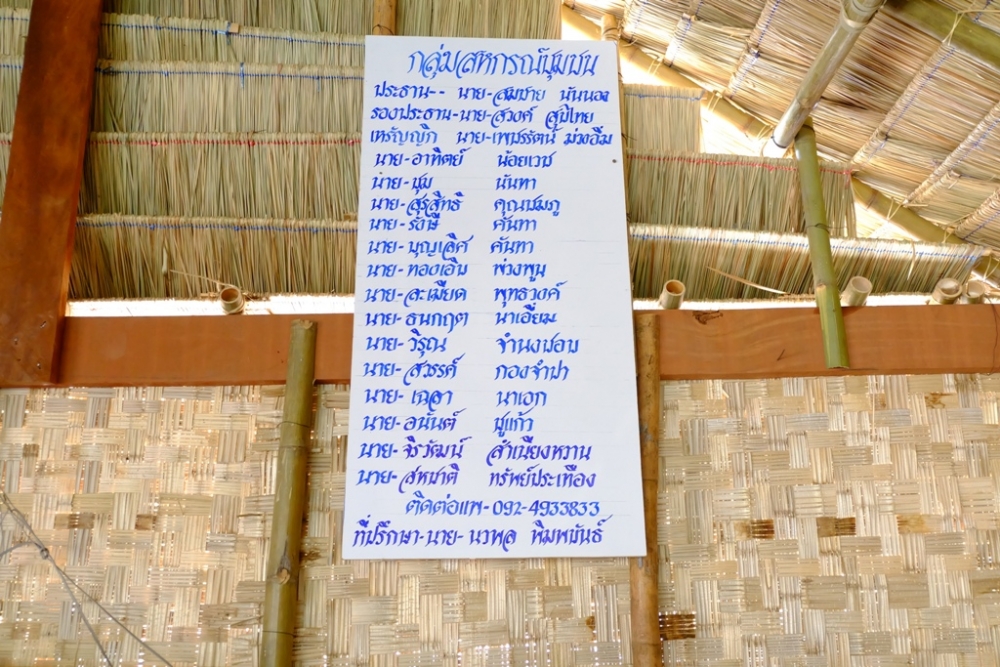 กลุ่มสหกรณ์ชุมชน
ประธาน-- นาย-สมชาย นันนอง
รองประธาน-นาย-สวงค์ สุปีไทย
เหรัญญิก นาย-เพชรรัตน์ ม่วงอิ่ม
นาย-อาทิตย์ น้อยเวช
นาย-ชุม นันทา
นาย-สุรสิทธิ คุณชมภู
นาย-รังษี คันทา
นาย-บุญเลิศ คันทา
นาย-ทองเอิบ พ่วงพูน
นาย-ละเมียด พุทธวงค์
นาย-ธนกฤต นาเอี่ยม
นาย-วิรุณ จำนงชอบ
นาย-สวรรค์ กองจำปา
นาย-เฉลา นาเอก
นาย-อนันต์ ชูแก้ว
นาย-จิรวัฒน์ สำเนียงหวาน
นาย-สหชาติ ทรัพย์ประเทือง
ติดต่อแพ-092-4933833
ที่ปรึกษา-นาย-นวพล พิมพขันธ์